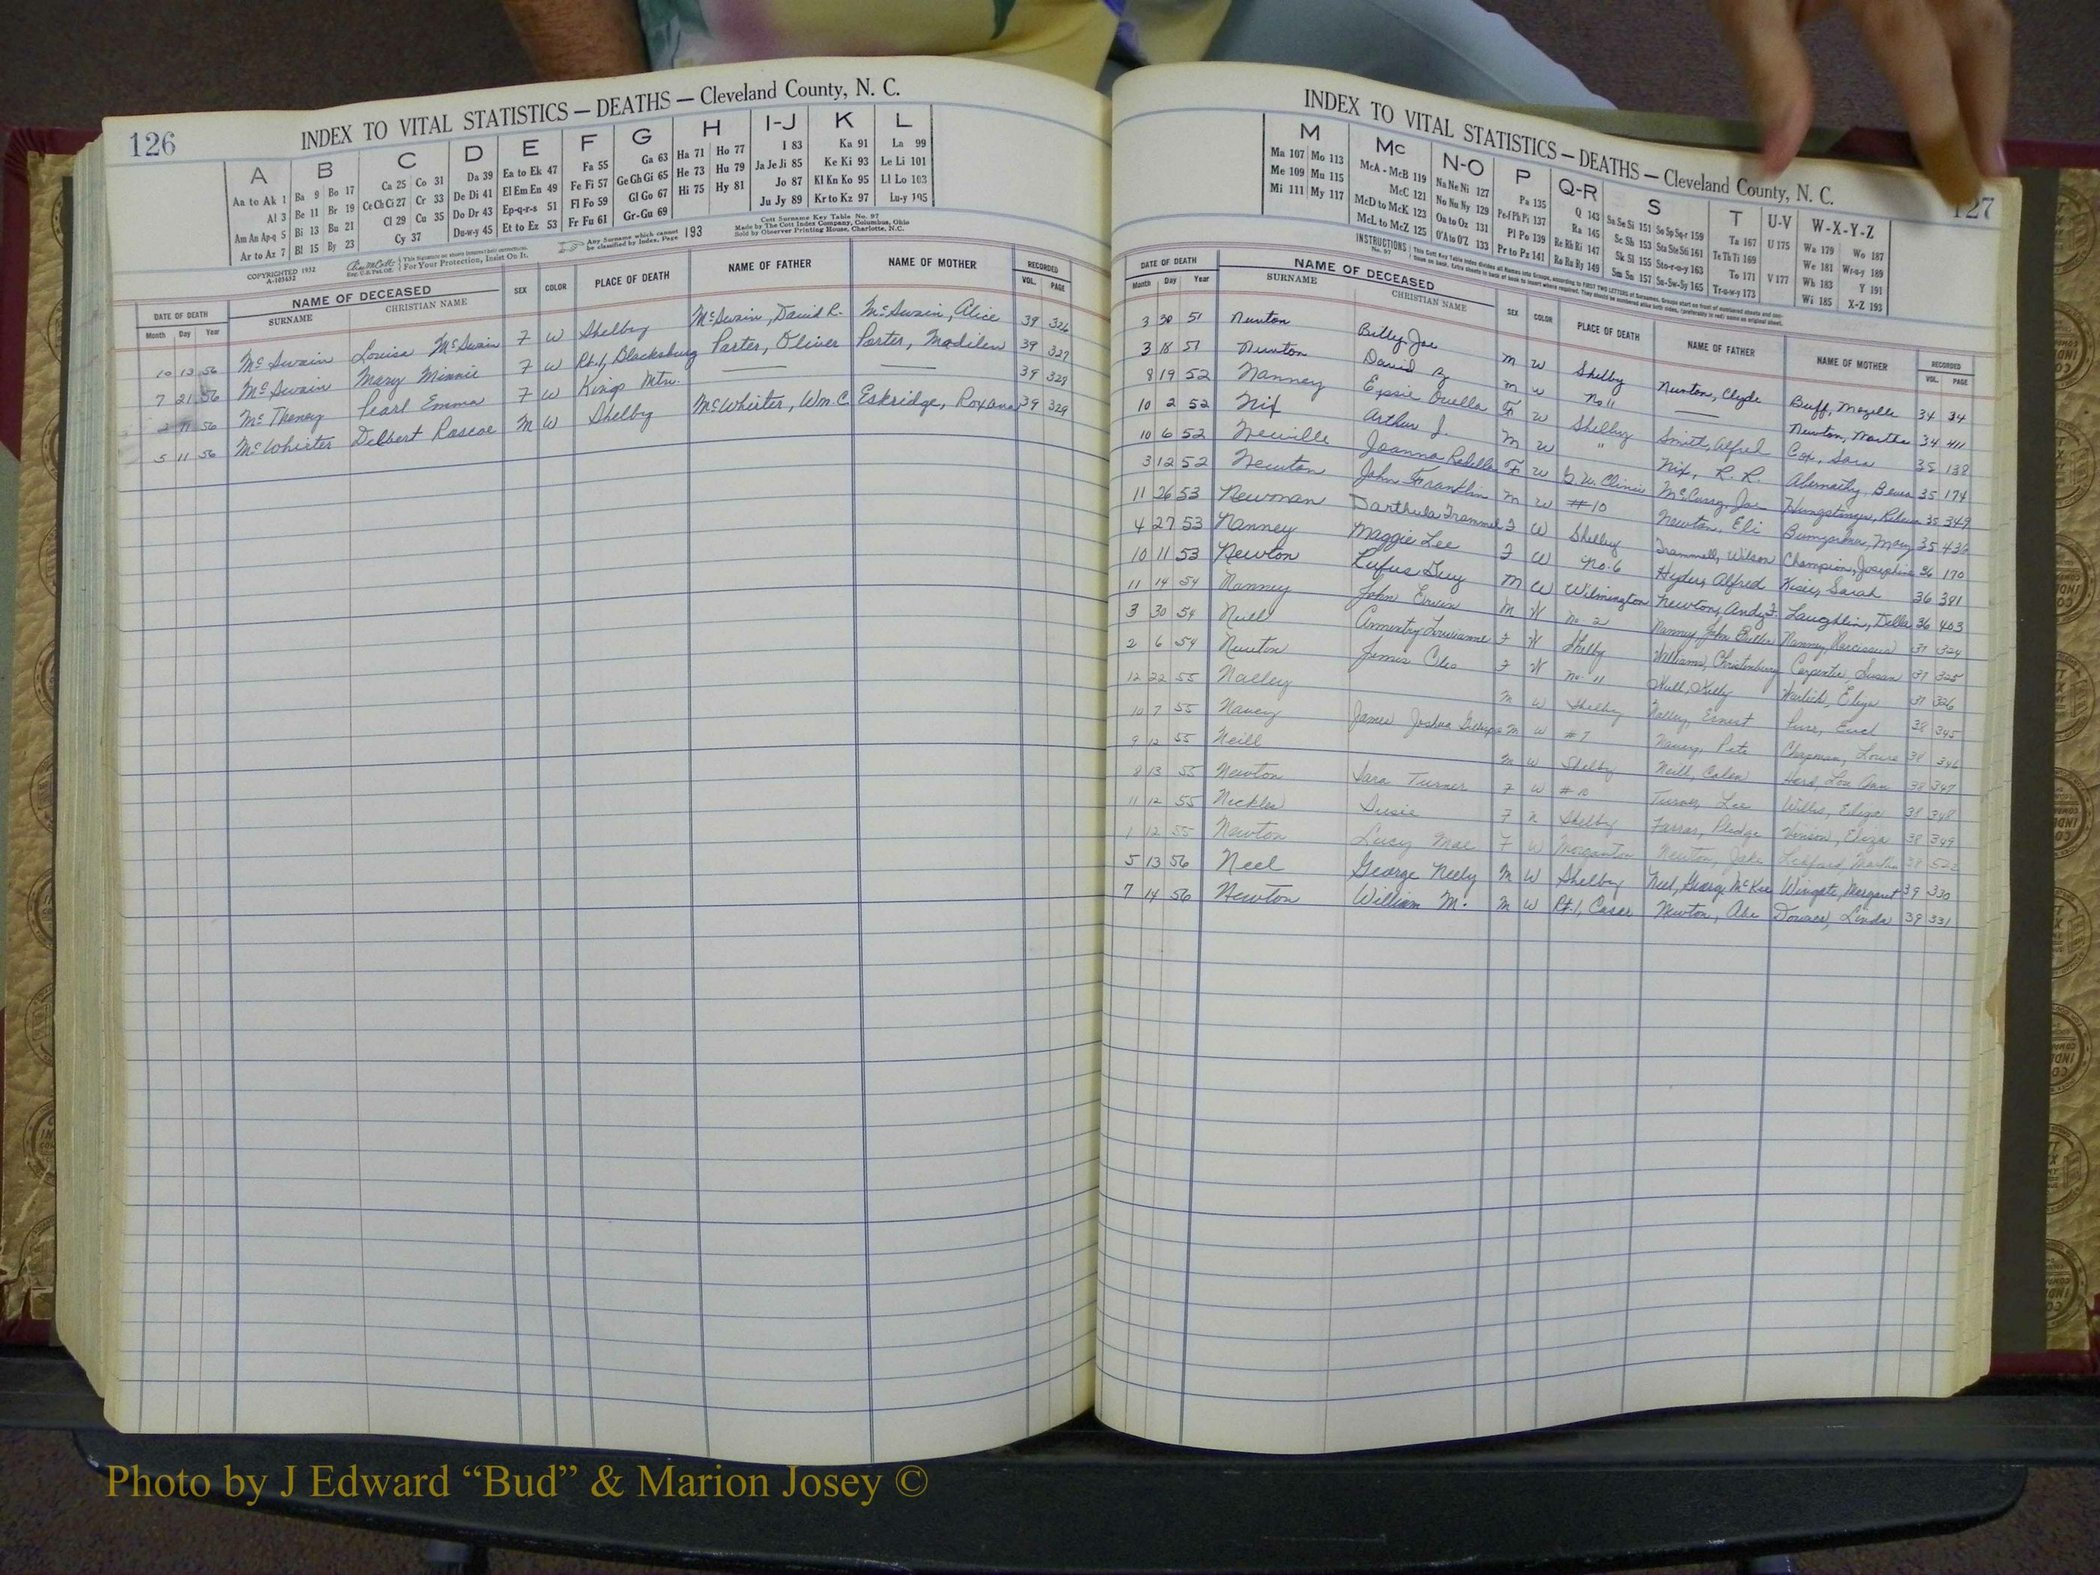 126
INDEX TO VITAL STATISTICS — DEATHS — Cleveland County, N. C.
A B C D E F G H I-J K L
Aa to Ak 1 Ba 9 Bo 17 Ca 25 Co 31 Da 39 Ea to Ek 47 Fa 55 Ga 63 Ha 71 Ho 77 I 83 Ka 91 La 99
Al 3 Be 11 Br 19 Ce Ch Ci 27 Cr 33 De Di 41 El Em En 49 Fe Fi 57 Ge Gh Gi 65 He 73 Hu 79 Ja Je Ji 85 Ke Ki 93 Le Li 101
Am An Ap-q 5 Bi 13 Bu 21 Cl 29 Cu 35 Do Dr 43 Ep-q-r-s 51 Fl Fo 59 Gl Go 67 Hi 75 Hy 81 Jo 87 Kl Kn Ko 95 Ll Lo 103
Ar to Az 7 Bl 15 By 23 Cy 37 Du-w-y 45 Et to Ez 53 Fr Fu 61 Gr-Gu 69 Ju Jy 89 Kr to Kz 97 Lu-y 105
COPYRIGHTED 1932
A-103652
For Your Protection, Insist On It.
Any Surname which cannot be classified by Index, Page 193
Cott Surname Key Table No. 97
Made by The Cott Index Company, Columbus, Ohio
Sold by Observer Printing House, Charlotte, N.C.
DATE OF DEATH NAME OF DECEASED SEX COLOR PLACE OF DEATH NAME OF FATHER NAME OF MOTHER RECORDED
Month Day Year SURNAME CHRISTIAN NAME VOL. PAGE
10 13 56 McSwain Louisa McSwain F W Shelby McSwain, David R. McSwain, Alice 39 326
7 21 56 McSwain Mary Minnie F W Rt. 1, Blacksburg Porter, Oliver Porter, Madilen 39 327
2 11 56 McTheney Pearl Emma F W Kings Mtn. — — 39 328
5 11 56 McWhirter Delbert Roscoe M W Shelby McWhirter, Wm C. Eskridge, Roxana 39 329
127
INDEX TO VITAL STATISTICS — DEATHS — Cleveland County, N. C.
M Mc N-O P Q-R S T U-V W-X-Y-Z
Ma 107 Mo 113 McA - McB 119 Na Ne Ni 127 Pa 135 Q 143 Sa Se Si 151 So Sp Sq-r 159 Ta 167 U 175 Wa 179 Wo 187
Me 109 Mu 115 McC 121 No Nu Ny 129 Pe-f Ph Pi 137 Ra 145 Sc Sh 153 Sta Ste Sti 161 Te Th Ti 169 We 181 Wr-u-y 189
Mi 111 My 117 McD to McK 123 Oa to Oz 131 Pl Po 139 Re Rh Ri 147 Sk Sl 155 Sto-r-u-y 163 To 171 V 177 Wh 183 Y 191
McL to McZ 125 O'A to O'Z 133 Pr to Pz 141 Ro Ru Ry 149 Sm Sn 157 Su-Sw-Sy 165 Tr-u-w-y 173 Wi 185 X-Z 193
INSTRUCTIONS
No. 97
DATE OF DEATH NAME OF DECEASED SEX COLOR PLACE OF DEATH NAME OF FATHER NAME OF MOTHER RECORDED
Month Day Year SURNAME CHRISTIAN NAME VOL. PAGE
3 30 51 Newton Billy Joe M W Shelby Newton, Clyde Buff, Mozelle 34 34
3 18 51 Newton David M W No 11 — Newton, Martha 34 411
8 19 52 Nanney Essie Ouella F W Shelby Smith, Alfred Cox, Sara 35 138
10 2 52 Nix Arthur J. M W " Nix, R. R. Abernathy, 35 174
10 6 52 Neville Joanna F W Clinic McCurry, Joe 35 349
3 12 52 Newton John Franklin M W #10 Newton, Eli Bumgardner, Mary 35 436
11 26 53 Newman Darthula Trammel F W Shelby Trammell, Wilson Champion, Josephine 36 170
4 27 53 Nanney Maggie Lee F W No. 6 Hyder, Alfred Kiser, Sarah 36 381
10 11 53 Newton Rufus Guy M W Wilmington Newton, Andy F. Laughlin, Della 36 403
11 14 54 Nanney John Ervin M W No 2 Nanney, John Butler Nanney, Narcissus 37 324
3 30 54 Neill Louisianne F W Shelby Williams, Carpenter, Susan 37 325
2 6 54 Newton James Cleo F W No. 11 Warlick, Eliza 37 326
12 22 55 Nalley M W Shelby Nalley, Ernest 38 345
10 7 55 Nancy James Joshua M W #7 Nancy, Pete Chapman, 38 346
9 12 55 Neill M W Shelby Neill, Calen Hord, Lou Ann 38 347
8 13 55 Newton Sara Turner F W #10 Turner, Lee Willis, Eliza 38 348
11 12 55 Susie F N Shelby Farrar, Pledge Vinson, Eliza 38 349
1 12 55 Newton Lucy Mae F W Morganton Newton, Jake 38 522
5 13 56 Neel George Neely M W Shelby Neel, George McKee Wingate, Margaret 39 330
7 14 56 Newton William M. M W Rt. 1, Casar Newton, Abe Downs, Linda 39 331
Photo by J Edward “Bud” & Marion Josey ©